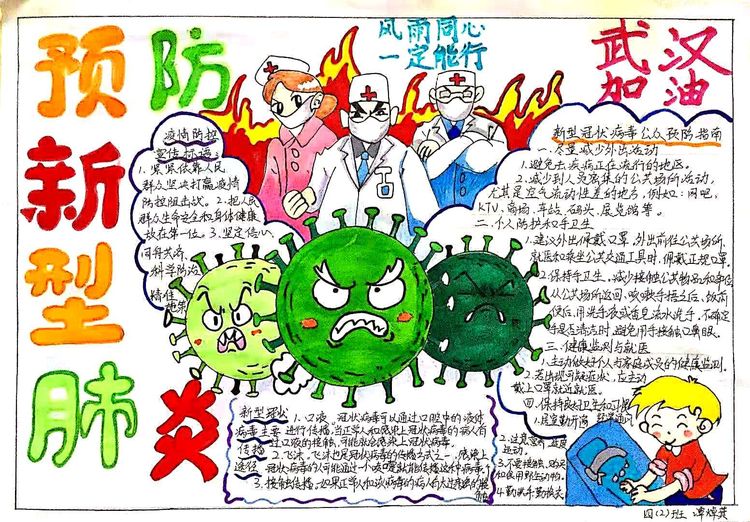 预防
新型
肺炎
风雨同心
一定能行
武汉
加油
疫情防控
宣传标语:
1.紧紧依靠人民
群众坚决打赢疫情
防控阻击战。2.把人民
群众生命安全和身体健康
放在第一位。3.坚定信心
同舟共济、
科学防治
精准
施策
新型冠状病毒公众预防指南
一.尽量减少外出活动
1.避免去疾病正在流行的地区。
2.减少到人员密集的公共场所活动,
尤其是空气流动性差的地方,例如:网吧,
KTV、商场、车站、码头、展览馆等。
二.个人防护和手卫生
1.建议外出佩戴口罩,外出前往公共场所,
就医和乘坐公共交通工具时,佩戴正规口罩。
2.保持手卫生,减少接触公共物品和部位,
从公共场所返回、咳嗽手捂之后、饭前
便后,用洗手液或香皂流水洗手,不确定
手是否清洁时,避免用手接触口鼻眼。
三.健康监测与就医
1.主动做好个人与家庭成员的健康监测。
2.若出现可疑症状,应主动
戴上口罩就近就医。
四.保持良好卫生和习惯
1.居室勤开通
2.注意营养,适度
运动。
3.不要接触、购买
和食用野生动物。
4.勤洗手勤放大
新型冠状
病毒主要
传播
途径
1.口液、冠状病毒可以通过口腔中的液体
进行传播,当正常人和感染上冠状病毒的病人有
过口液的接触,可能就会感染上冠状病毒。
2.飞沫,飞沫也是冠状病毒的传播方式之一,感染上
冠状病毒的人可能通过一个喷嚏就能传播这种病毒
3.接触传播,如果正常人和冰病毒的病人有过
四(2)班